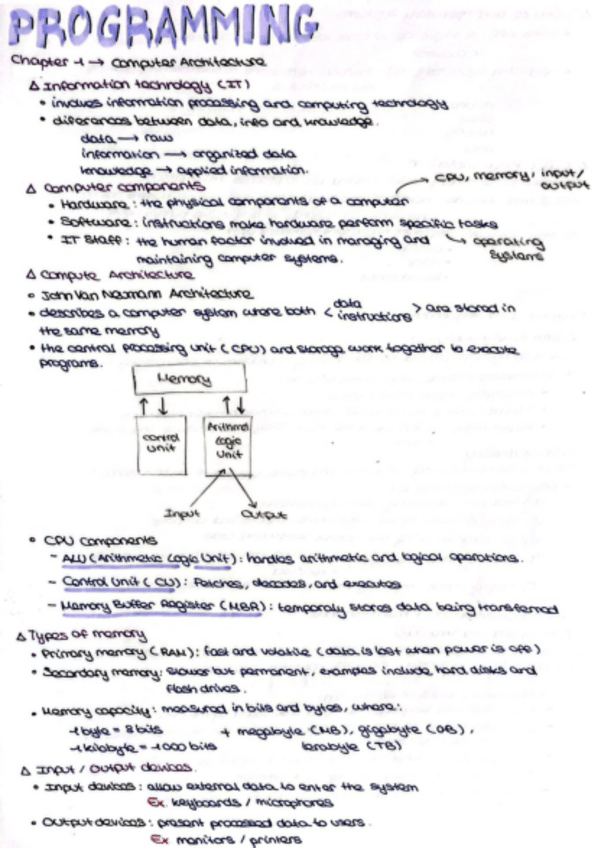 PROGRAMMING
Chapter 1 → Computer Architecture
Δ Information technology (IT)
• involves information processing and computing technology
• diferences between data, info and knowledge.
data → raw
information → organized data
knowledge → applied information.
Δ Computer components
• Hardware: the physical components of a computer → CPU, memory, input/output
• Software: instructions make hardware perform specific tasks → operating systems
• IT Staff: the human factor involved in managing and
maintaining computer systems.
Δ Compute Architecture
• John Van Neumann Architecture
• describes a computer system where both < data instructions > are stored in
the same memory
• the central processing unit (CPU) and storage work together to execute
programs.
Memory
↑ ↓ ↑ ↓
control unit
Arithmd Logic Unit
Input Output
• CPU components
- ALU (Arithmetic Logic Unit): handles arithmetic and logical operations.
- Control Unit (CU): Fetches, decodes, and executes
- Memory Buffer Register (MBR): temporaly stores data being transferred
Δ Types of memory
• Primary memory (RAM): fast and volative (data is lost when power is off)
• Secondary memory: slower but permanent, examples include hard disks and
flash drives.
• Memory capacity: measured in bits and bytes, where:
1 byte = 8 bits + megabyte (MB), gigabyte (GB),
1 kilobyte = 1000 bits terabyte (TB)
Δ Input / Output devices.
• Input devices: allow external data to enter the system
Ex. keyboards / microphones
• Output devices: present processed data to users.
Ex monitors / printers